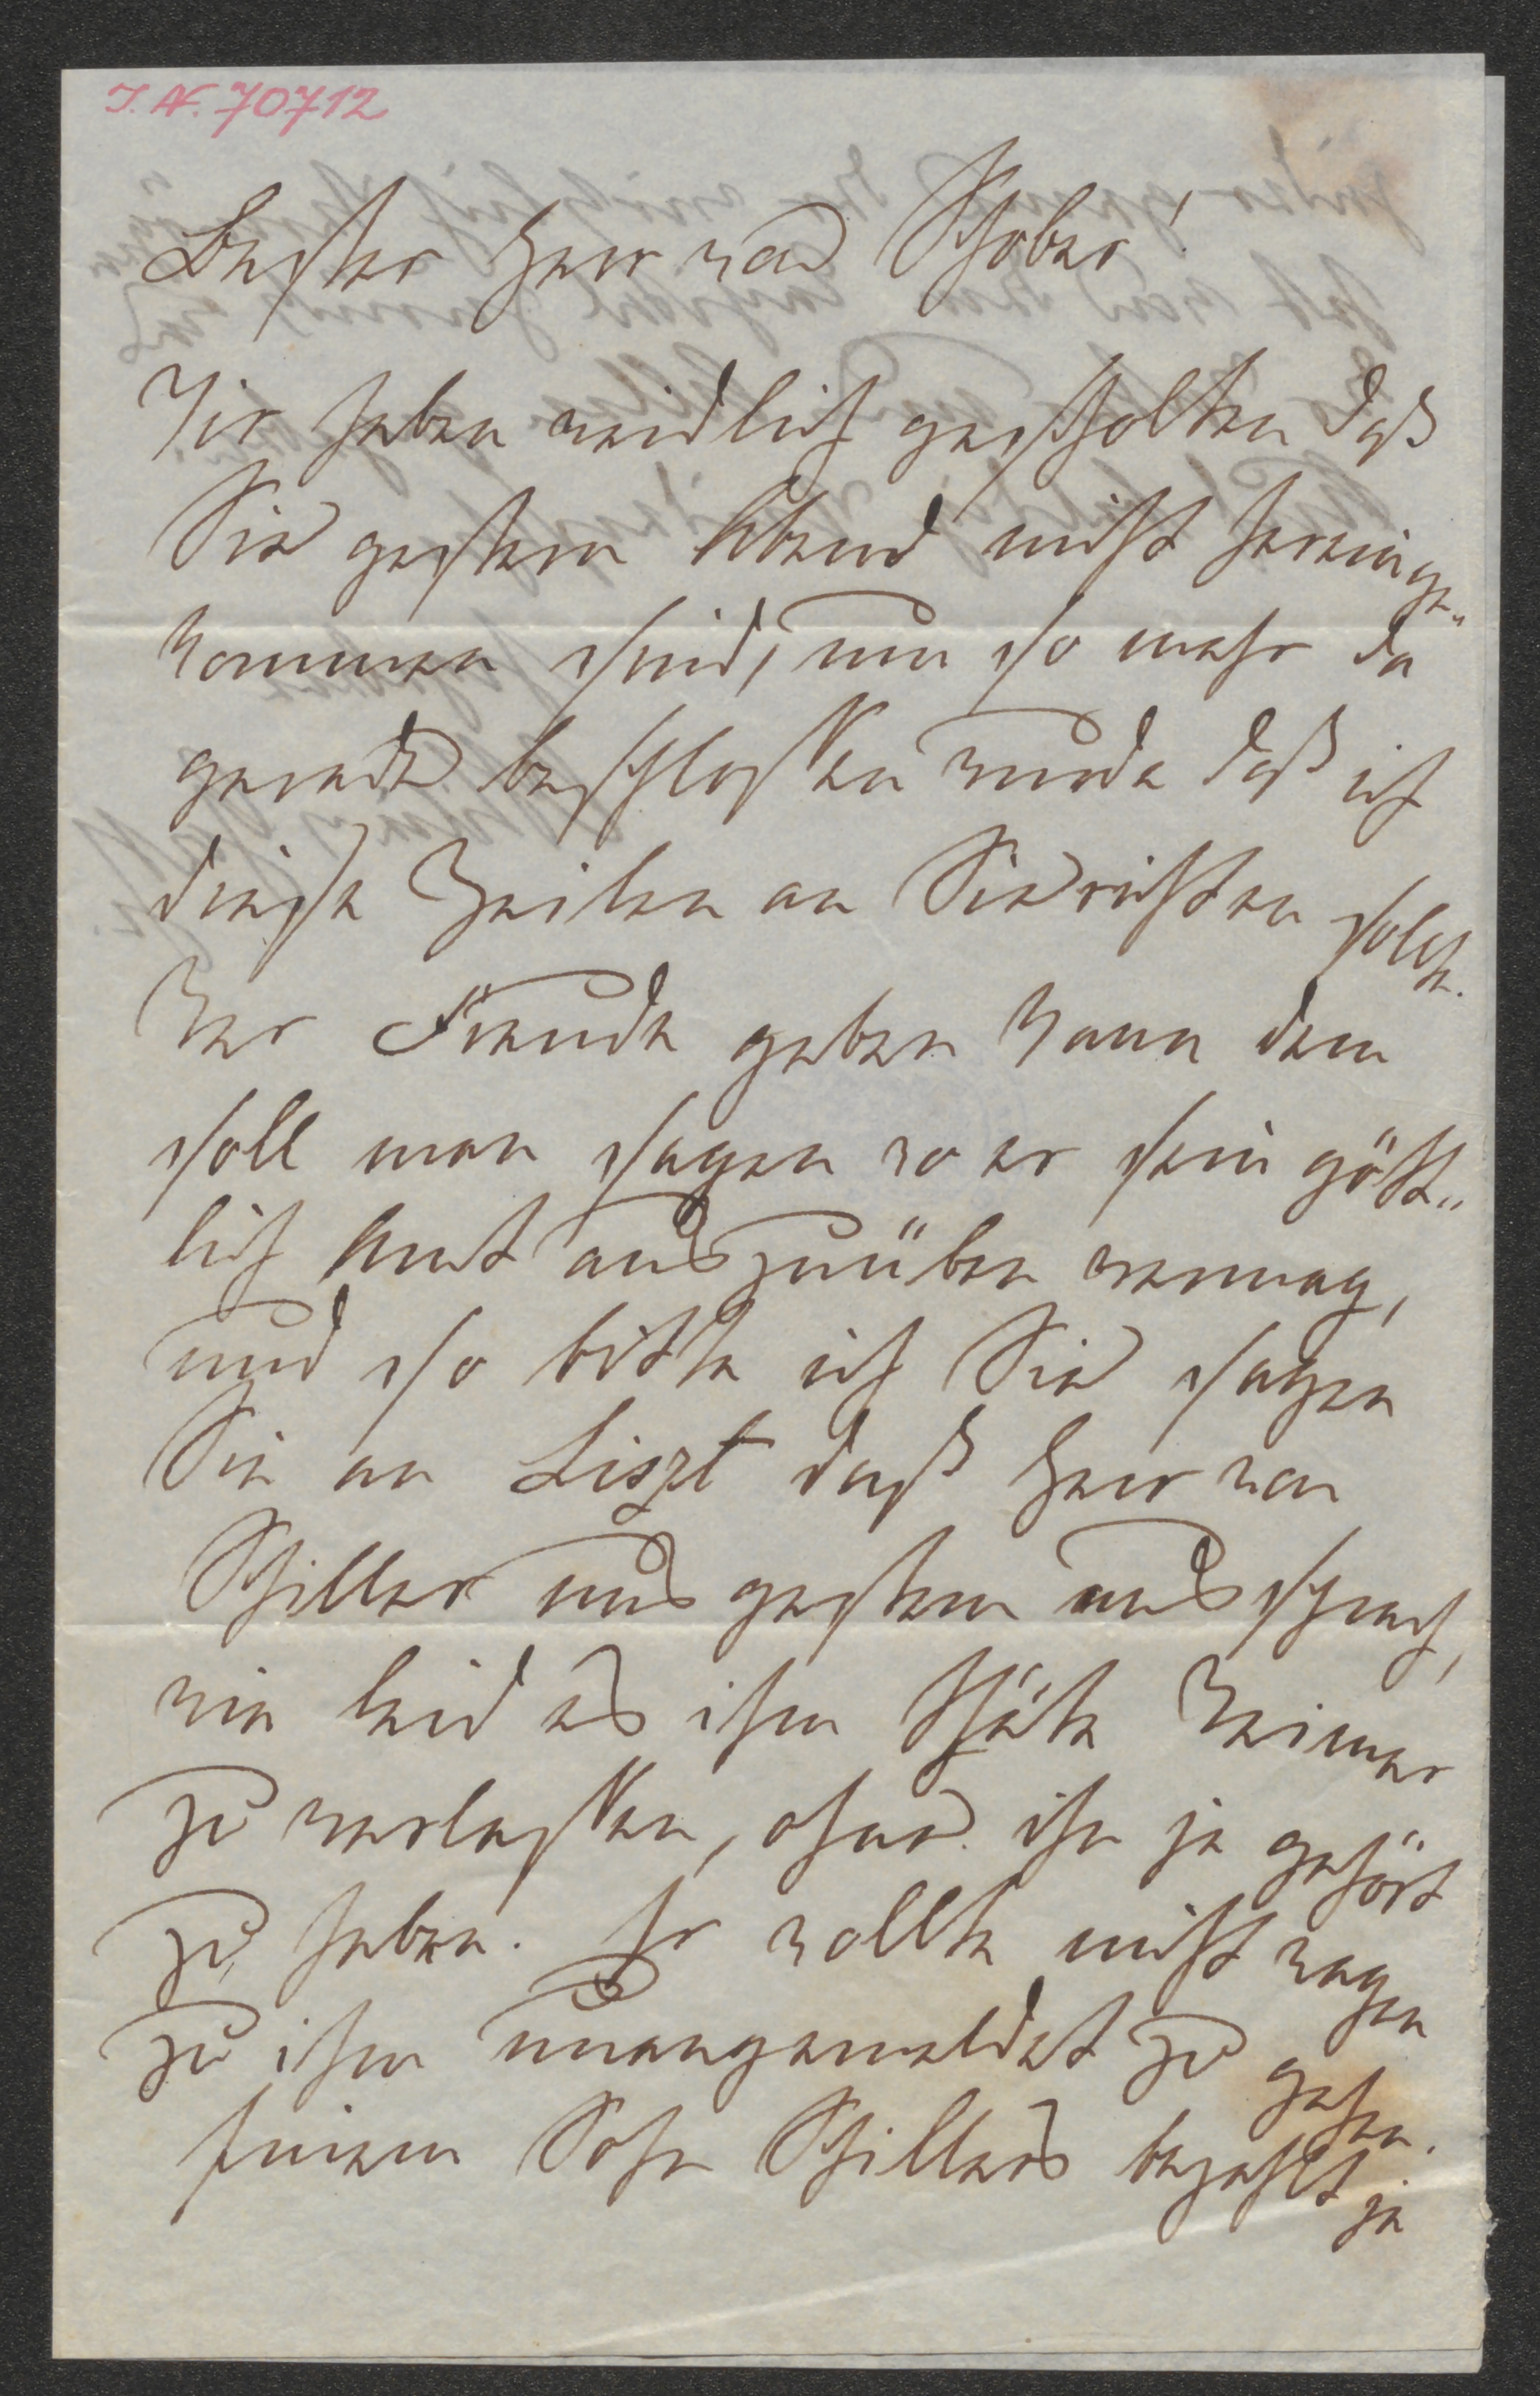 I. N. 70712
Bester Herr von Schober!
Wir haben weidlich gescholten daß
Sie gestern Abend nicht hereinge-
kommen sind, um so mehr da
gerade beschlossen wurde daß ich
diese Zeilen an Sie richten sollte.
Wer Freude geben kann dem
soll man sagen wo er sein gött-
lich Amt auszuüben vermag,
und so bitte ich Sie sagen
Sie an Liszt daß Herr von
Schiller uns gestern aussprach,
wie leid es ihm thäte Weimar
zu verlassen, ohne ihn je gehört
zu haben. Er wollte nicht wagen
zu ihm unangemeldet zu gehen.
Sohn Schillers bezahlt ja